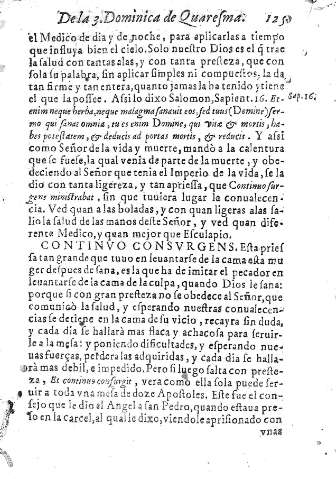 De la 3. Dominica de Quaresma. 125
el Medico de dia y de noche, para aplicarlas a tiempo
que influya bien el cielo. Solo nuestro Dios es el q̃ trae
la salud con tantas alas, y con tanta presteza, que con
sola su palabra, sin aplicar simples ni compuestos, la da
tan firme y tan entera, quanto jamas la ha tenido ytiene
el que la possee. Assi lo dixo Salomon, Sapient. 16. Et-
Sap. 16.
enim neque herba, neque malagma sanauit eos, sed tuus (Domine) ser-
mo qui sanas omnia, tu es enim Domine, qui vitæ & mortis, ha-
bes potestatem, & deducis ad portas mortis, & reducis. Y assi
como Señor de la vida y muerte, mandò a la calentura
que se fuese, la qual venia de parte de la muerte, y obe-
deciendo al Señor que tenia el Imperio de la vida, se la
dio con tanta ligereza, y tan apriessa, que Continuo sur-
gens ministrabat, sin que tuuiera lugar la conualecen-
cia. Ved quan a las boladas, y con quan ligeras alas sa-
lio la salud de las manos deste Señor, y ved quan dife-
rente Medico, y quan mejor que Esculapio.
CONTINVO CONSVRGENS. Esta pries
sa tan grande que tuuo en leuantarse de la cama esta mu
ger despues de sana, es la que ha de imitar el pecador en
leuantarse de la cama de la culpa, quando Dios le sana:
porque si con gran presteza no se obedece al Señor, que
comunicò la salud, y esperando nuestras conualecen-
cias se detiene en la cama de su vicio, recayra sin duda,
y cada dia se hallarà mas flaca y achacosa para seruir-
le a la mesa: y poniendo dificultades, y esperando nue-
uas fuerças, perdera las adquiridas, y cada dia se halla-
rà mas debil, e impedido. Pero si luego salta con preste-
za, Et continuo consurgit, vera como ella sola puede ser-
uir a toda vna mesa de doze Apostoles. Este fue el con-
sejo que le dio el Angel a san Pedro, quando estaua pre-
so en la carcel, al qual le dixo, viendole aprisionado con
vnas